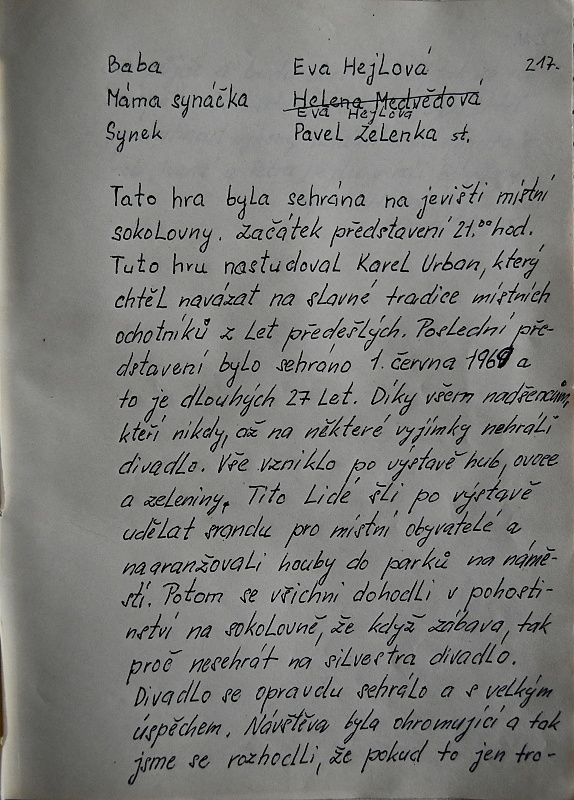 217.
Baba Eva Hejlová
Máma synáčka Helena Medvědová
Eva Hejlová
Synek Pavel Želenka st.
Tato hra byla sehrána na jevišti místní
sokolovny. Začátek představení 21.00 hod.
Tuto hru nastudoval Karel Urban, který
chtěl navázat na slavné tradice místních
ochotníků z let předešlých. Poslední pře-
dstavení bylo sehráno 1. června 1969 a
to je dlouhých 27 let. Díky všem nadšencům,
kteří nikdy, až na některé vyjímky nehráli
divadlo. Vše vzniklo po výstavě hub, ovoce
a zeleniny. Tito lidé šli po výstavě
udělat srandu pro místní obyvatelé a
naaranžovali houby do parků na námě-
stí. Potom se všichni dohodli v pohosti-
nství na sokolovně, že když zábava, tak
proč nesehrát na silvestra divadlo.
Divadlo se opravdu sehrálo a s velkým
úspěchem. Návštěva byla ohromující a tak
jsme se rozhodli, že pokud to jen tro-